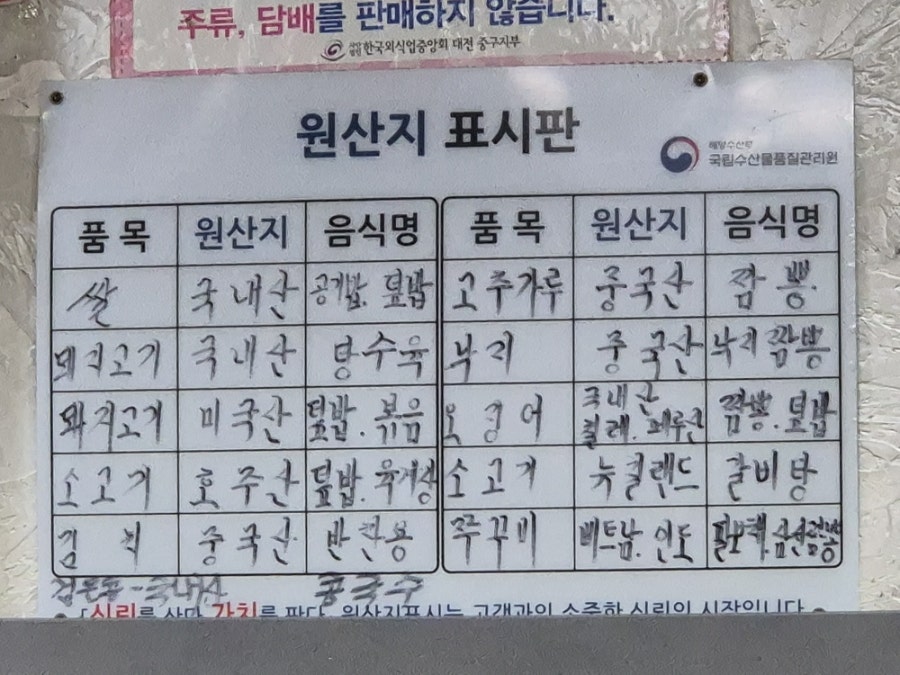 주류, 담배를 판매하지 않습니다.
한국외식업중앙회 대전 중구지부
원산지 표시판
해양수산부
국립수산물품질관리원
품 목 원산지 음식명 품 목 원산지 음식명
쌀 국내산 공기밥. 덮밥 고추가루 중국산 짬뽕
돼지고기 국내산 탕수육 낙지 중국산 낙지짬뽕
돼지고기 미국산 덮밥. 볶음 오징어 국내산 칠레. 페루산 짬뽕. 덮밥
소고기 호주산 덮밥. 육개장 소고기 뉴질랜드 갈비탕
김치 중국산 반찬용 쭈꾸미 베트남. 인도 팔보채. 삼선짬뽕
국내산 콩국수
「신뢰를 사면 가치를 판다, 원산지표시는 고객과의 소중한 신뢰의 시작입니다